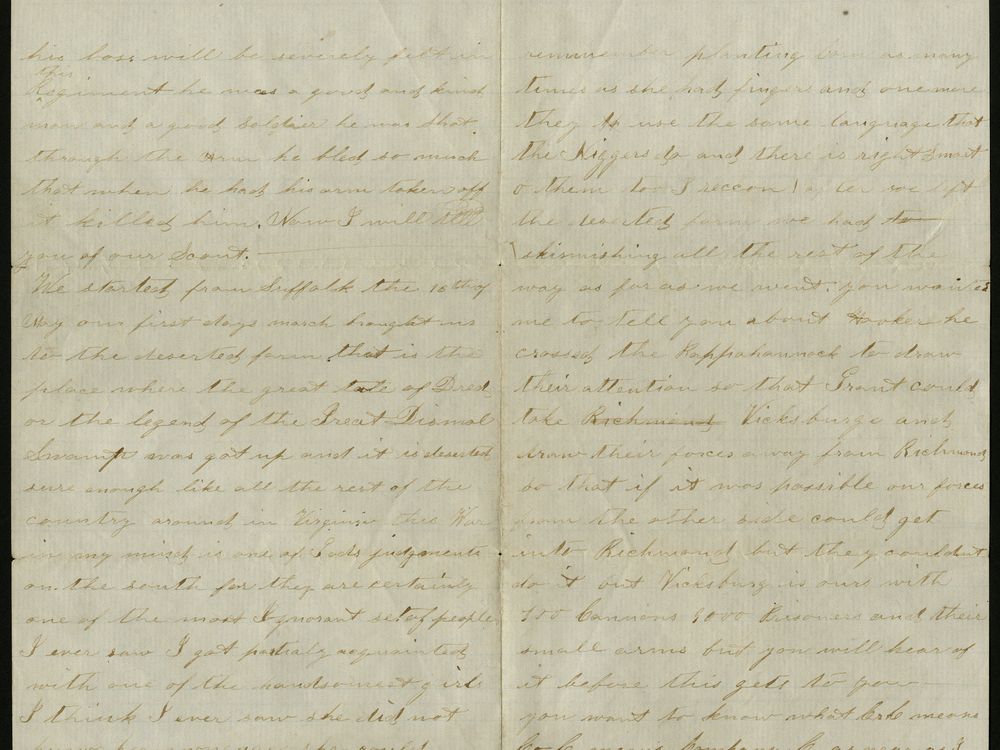 his loss will be severely felt in
this
Regiment he was a good and kind
man and a good soldier he was shot
through the arm he bled so much
that when he had his arm taken off
it killed him. Now I will tell
you of our Scout.
We started from Suffolk the 10th of
May our first days march brought us
to the deserted farm that is the
place where the great tale of Dred
or the legend of the Great Dismal
Swamp was got up and it is deserted
sure enough like all the rest of the
country around in Virginia this War
in my mind is one of Gods judgments
on the south for they are certainly
one of the most Ignorant set of people
I ever saw I got partialy acquainted
with one of the handsomest girls
I think I ever saw she did not
she could
rememember planting corn as many
times as she had fingers and one more
they use the same language that
the Niggers do and there is right smart
o them too I reccon after we left
the deserted farm we had to
skirmishing all the rest of the
way as far as we went. you wanted
me to tell you about Hooker he
crossed the Rappahannock to draw
their attention so that Grant could
take Richmond Vicksburge and
draw their forces away from Richmond
so that if it was possible our forces
from the other side could get
into Richmond but they couldnt
do it but Vicksburg is ours with
Cannons 9000 Prisoners and their
small arms but you will hear of
it before this gets to you
you want to know what means
means Company C as near as I